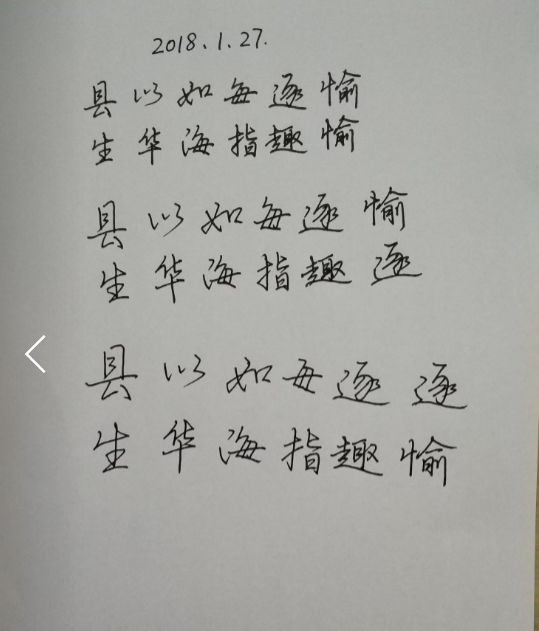 2018.1.27.
县以如每逐愉
生华海指趣愉
县以如每逐愉
生华海指趣逐
县以如每逐逐
生华海指趣愉